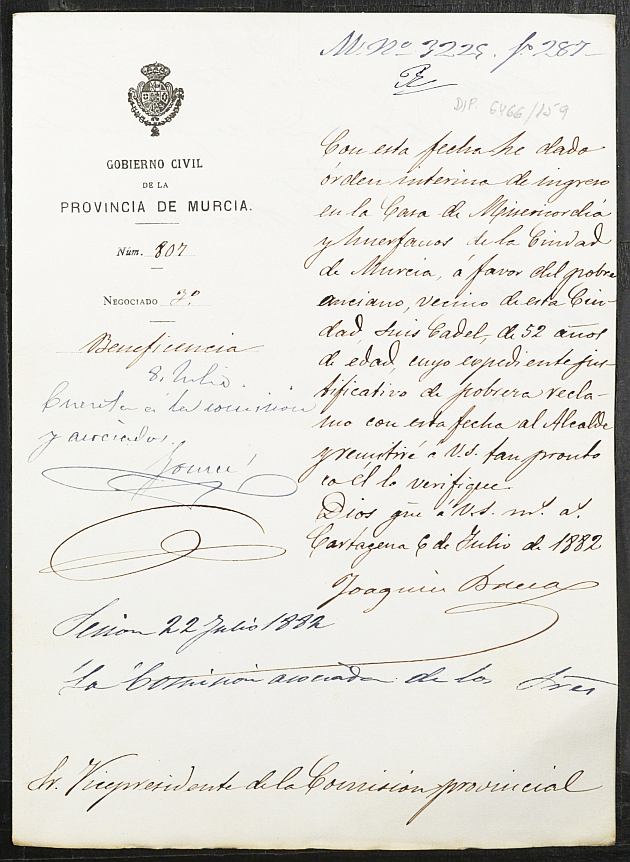 M. Nº 3225. fº 287
R
DIP. 6466/159
GOBIERNO CIVIL
DE LA
PROVINCIA DE MURCIA.
Núm. 807
NEGOCIADO 3º
Beneficencia
8. Julio.
Cuenta á la comisión
y asociados.
Con esta fecha he dado
órden interina de ingreso
en la Casa de Misericordia
y Huerfanos de la Ciudad
de Murcia, á favor del pobre
anciano, vecino de esta Ciu-
dad, Luis Cadel, de 52 años
de edad, cuyo expediente jus-
tificativo de pobreza recla-
mo con esta fecha al Alcalde
y remitiré á V.S. tan pronto
co él lo verifique.
Dios gue á V.S. ms. as.
Cartagena 6 de Julio de 1882
Joaquin
Sesion 22 Julio 1882
La Comisión asociada de los Sres
Sr. Vicepresidente de la Comision provincial